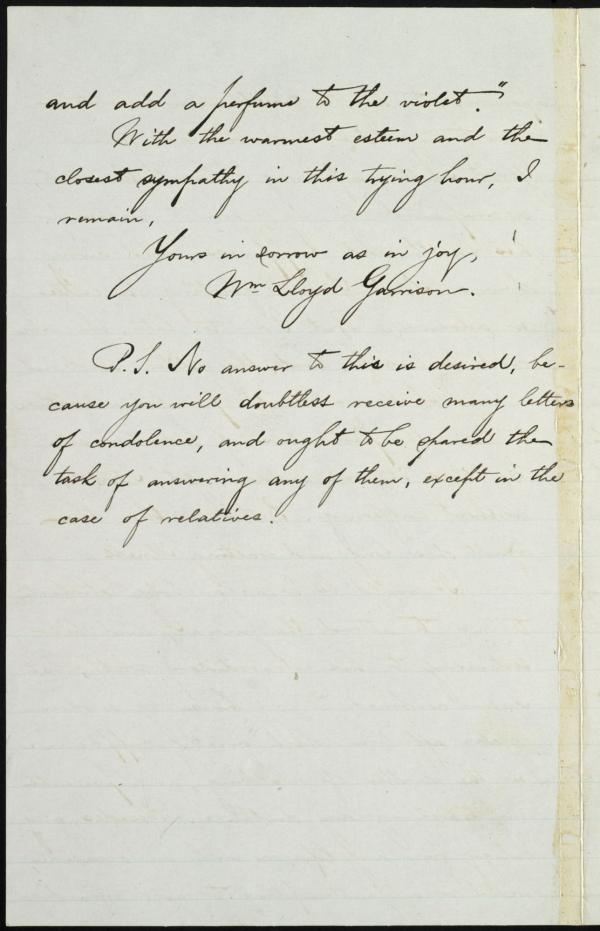 and add a perfume to the violet."
With the warmest esteem and the
closest sympathy in this trying hour, I
remain,
Yours in sorrow as in joy,
Wm Lloyd Garrison.
P.S. No answer to this is desired, be-
cause you will doubtless receive many letters
of condolence, and ought to be spared the
task of answering any of them, except in the
case of relatives.